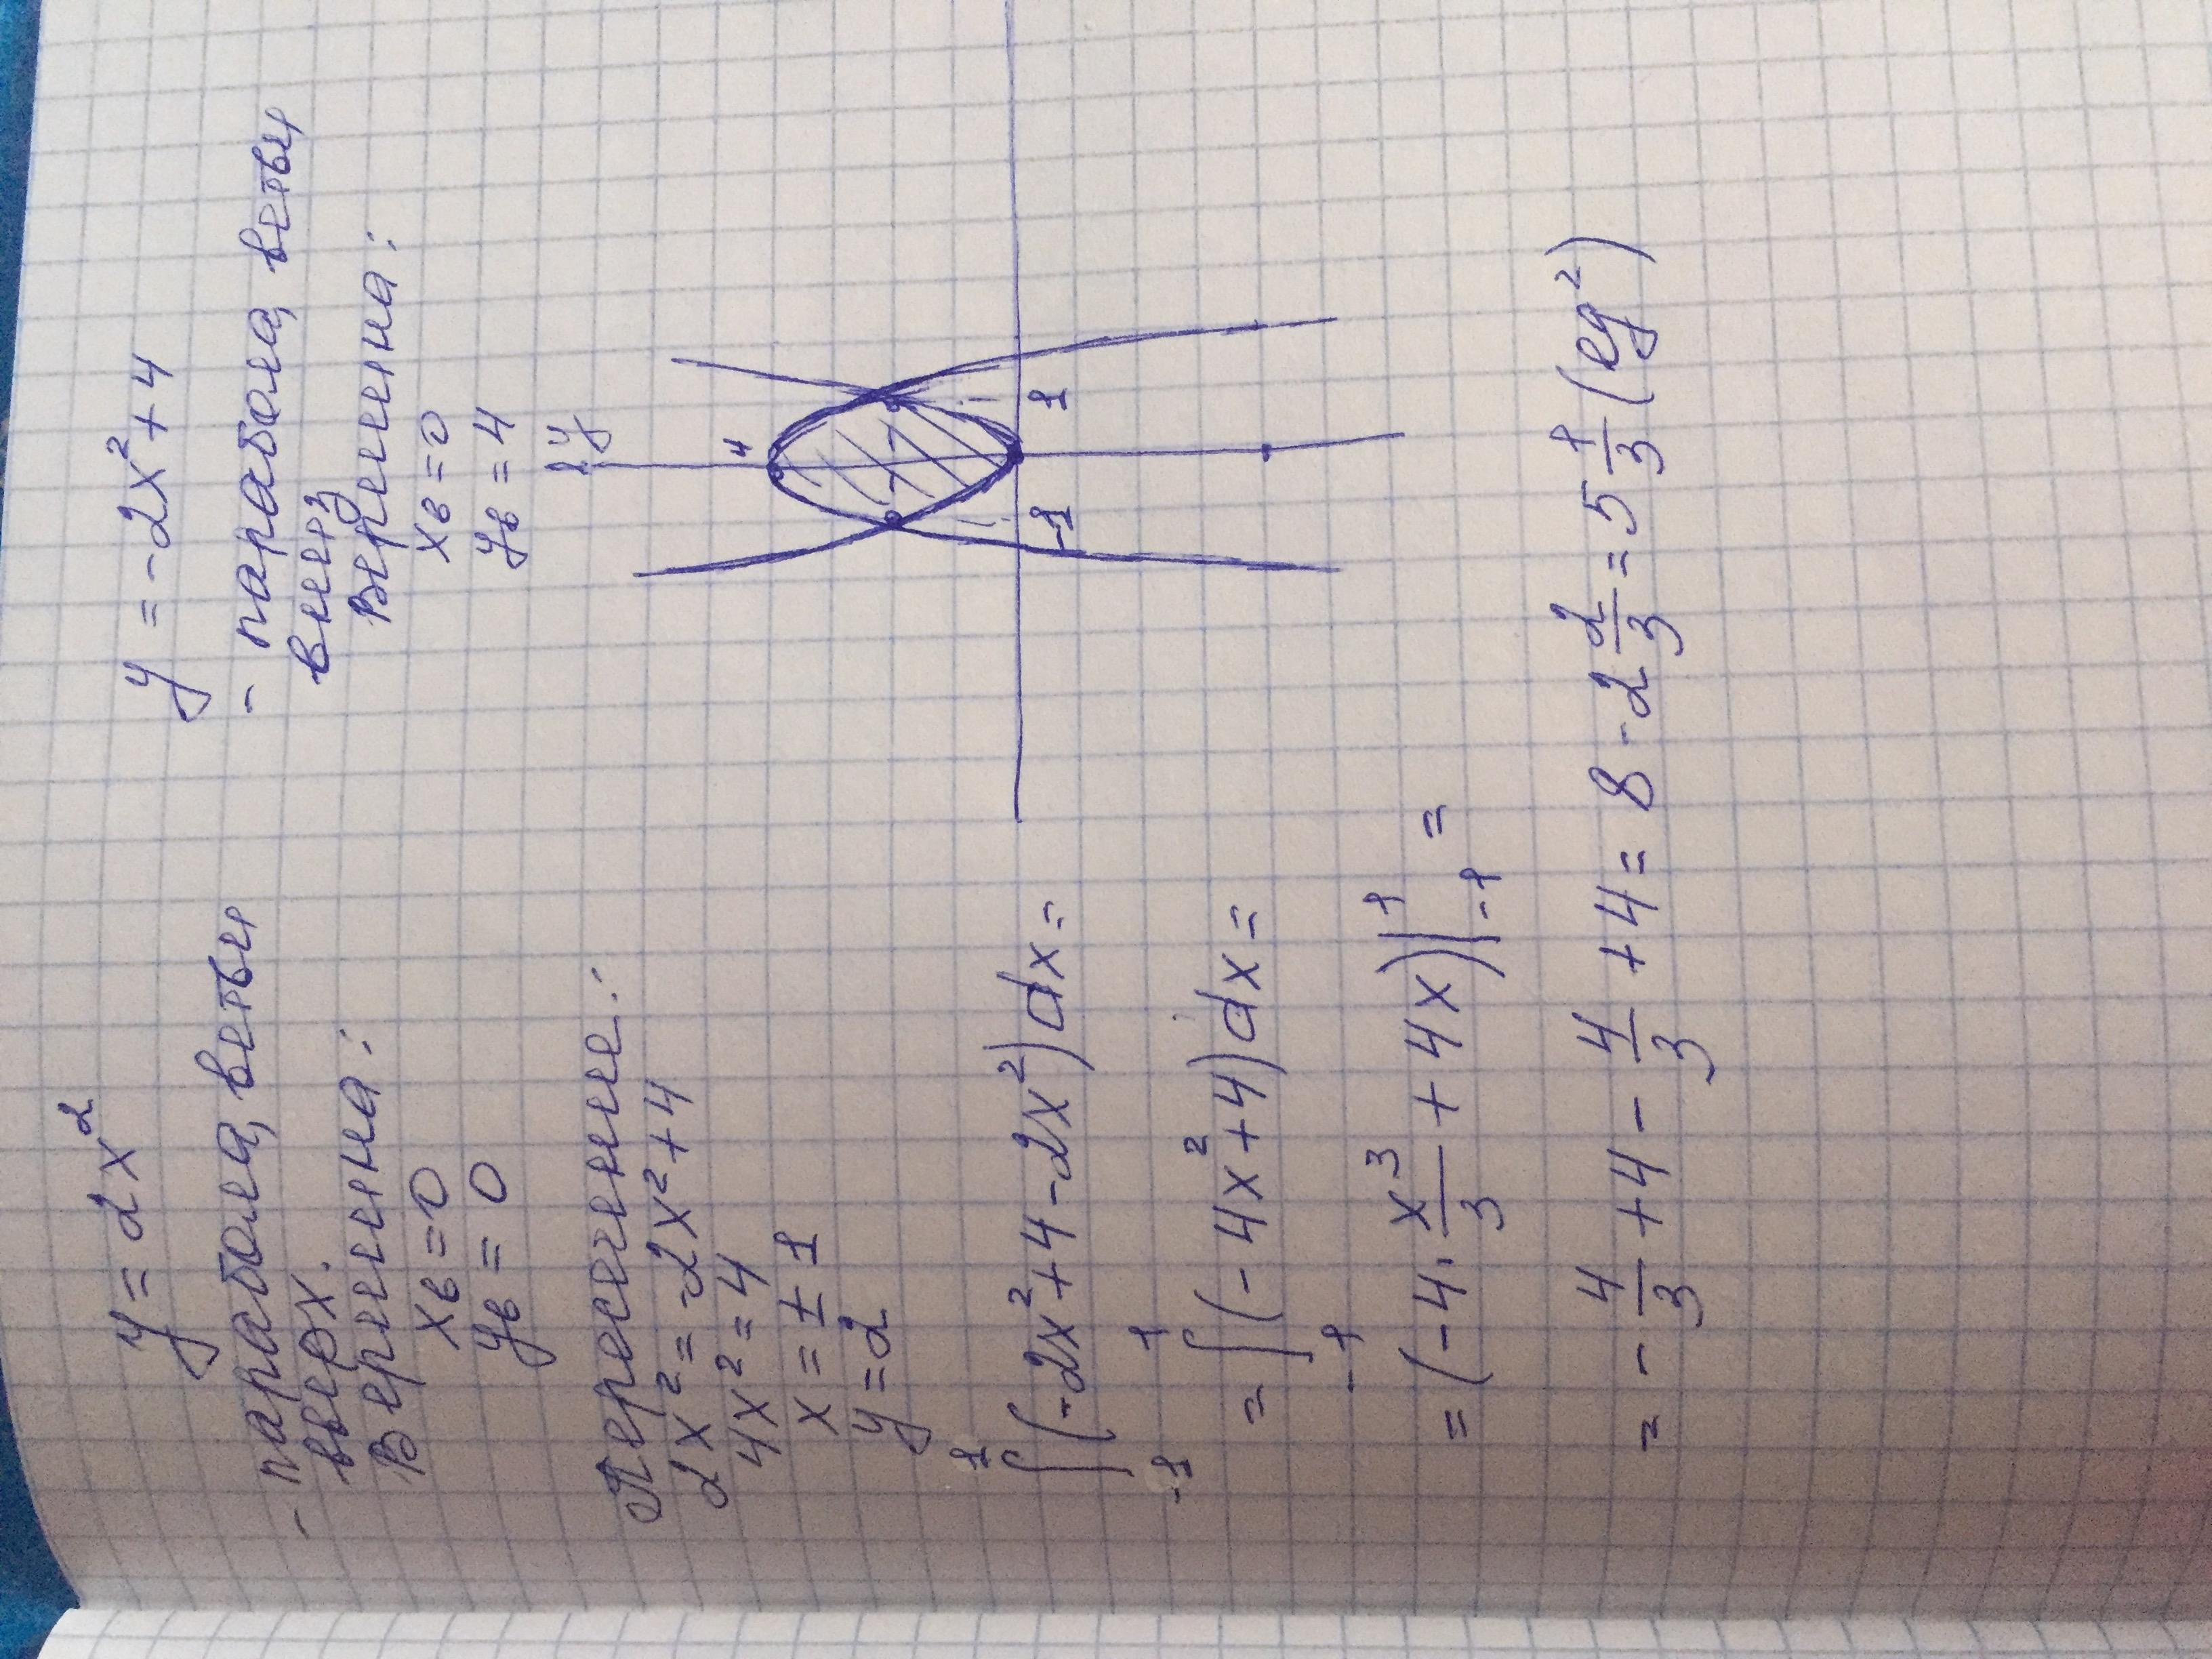 y = 2x²
- парабола, ветви
вверх.
Вершина:
xв = 0
yв = 0
y = -2x² + 4
- парабола, ветви
вниз
Вершина:
xв = 0
yв = 4
Пересечение:
2x² = -2x² + 4
4x² = 4
x = ± 1
y = 2
y
4
-1 1
∫₋₁¹ (-2x² + 4 - 2x²) dx =
= ∫₋₁¹ (-4x² + 4) dx =
= (-4 · x³/3 + 4x) |₋₁¹ =
= - 4/3 + 4 - 4/3 + 4 = 8 - 2 2/3 = 5 1/3 (ед²)